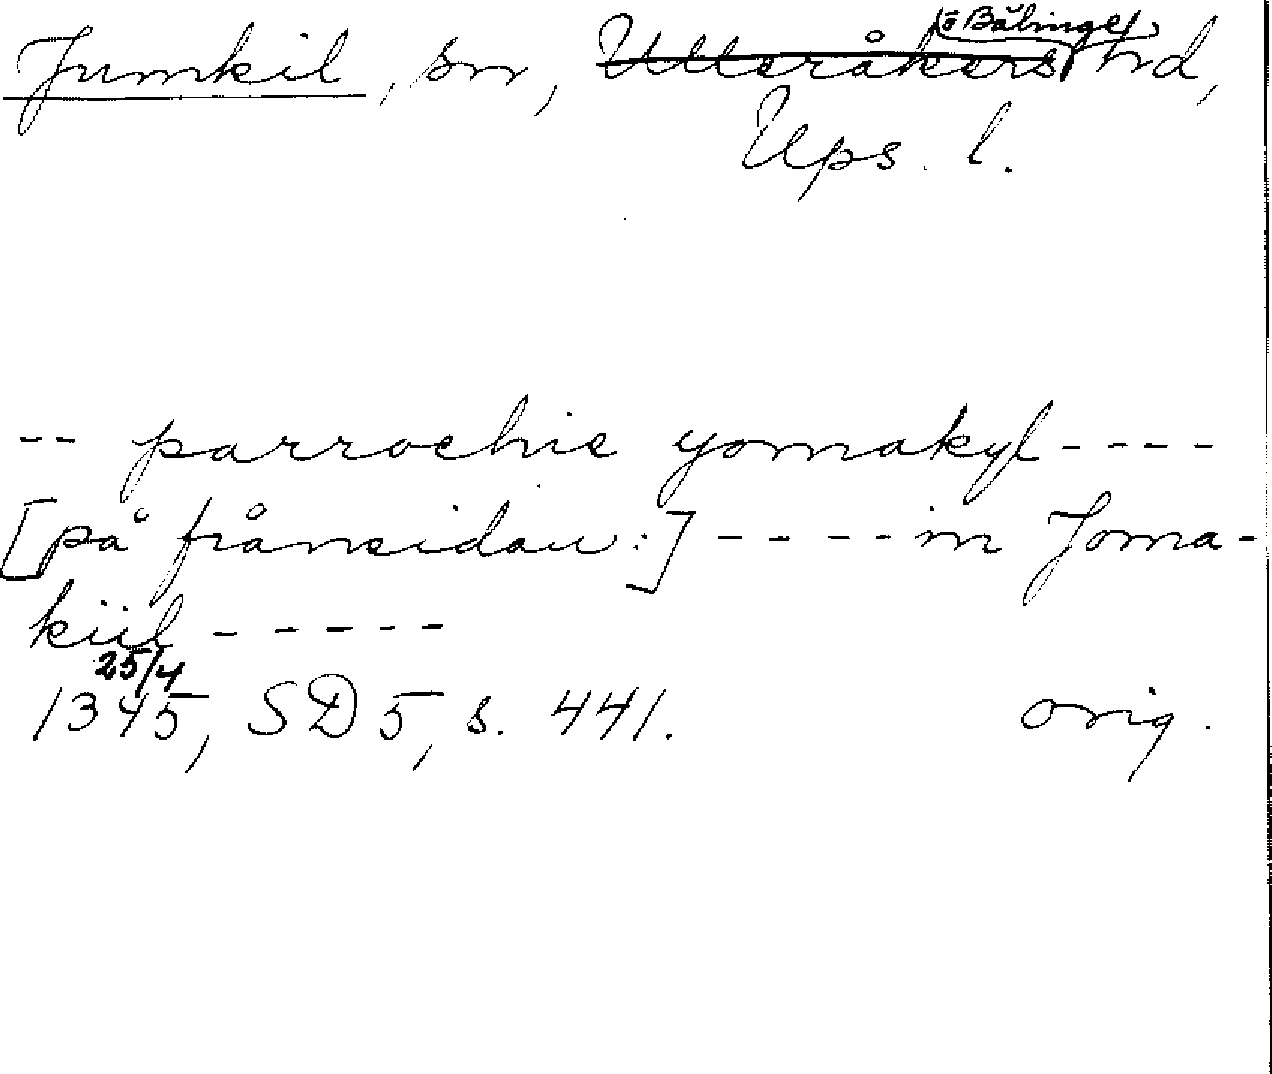 Jumkil, sn, Ulleråkers Bälinge hd,
Ups. l.
-- parrochie yomakyl ----
[på frånsidan:] ---- in Joma-
kiil -----
25/4
1345, SD 5, s. 441. orig.